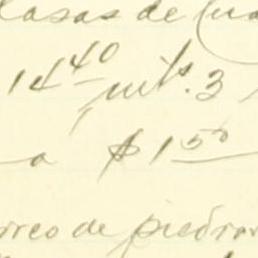 lasas de
14 40 mts. 3
a $ 1 50
rreo de piedra